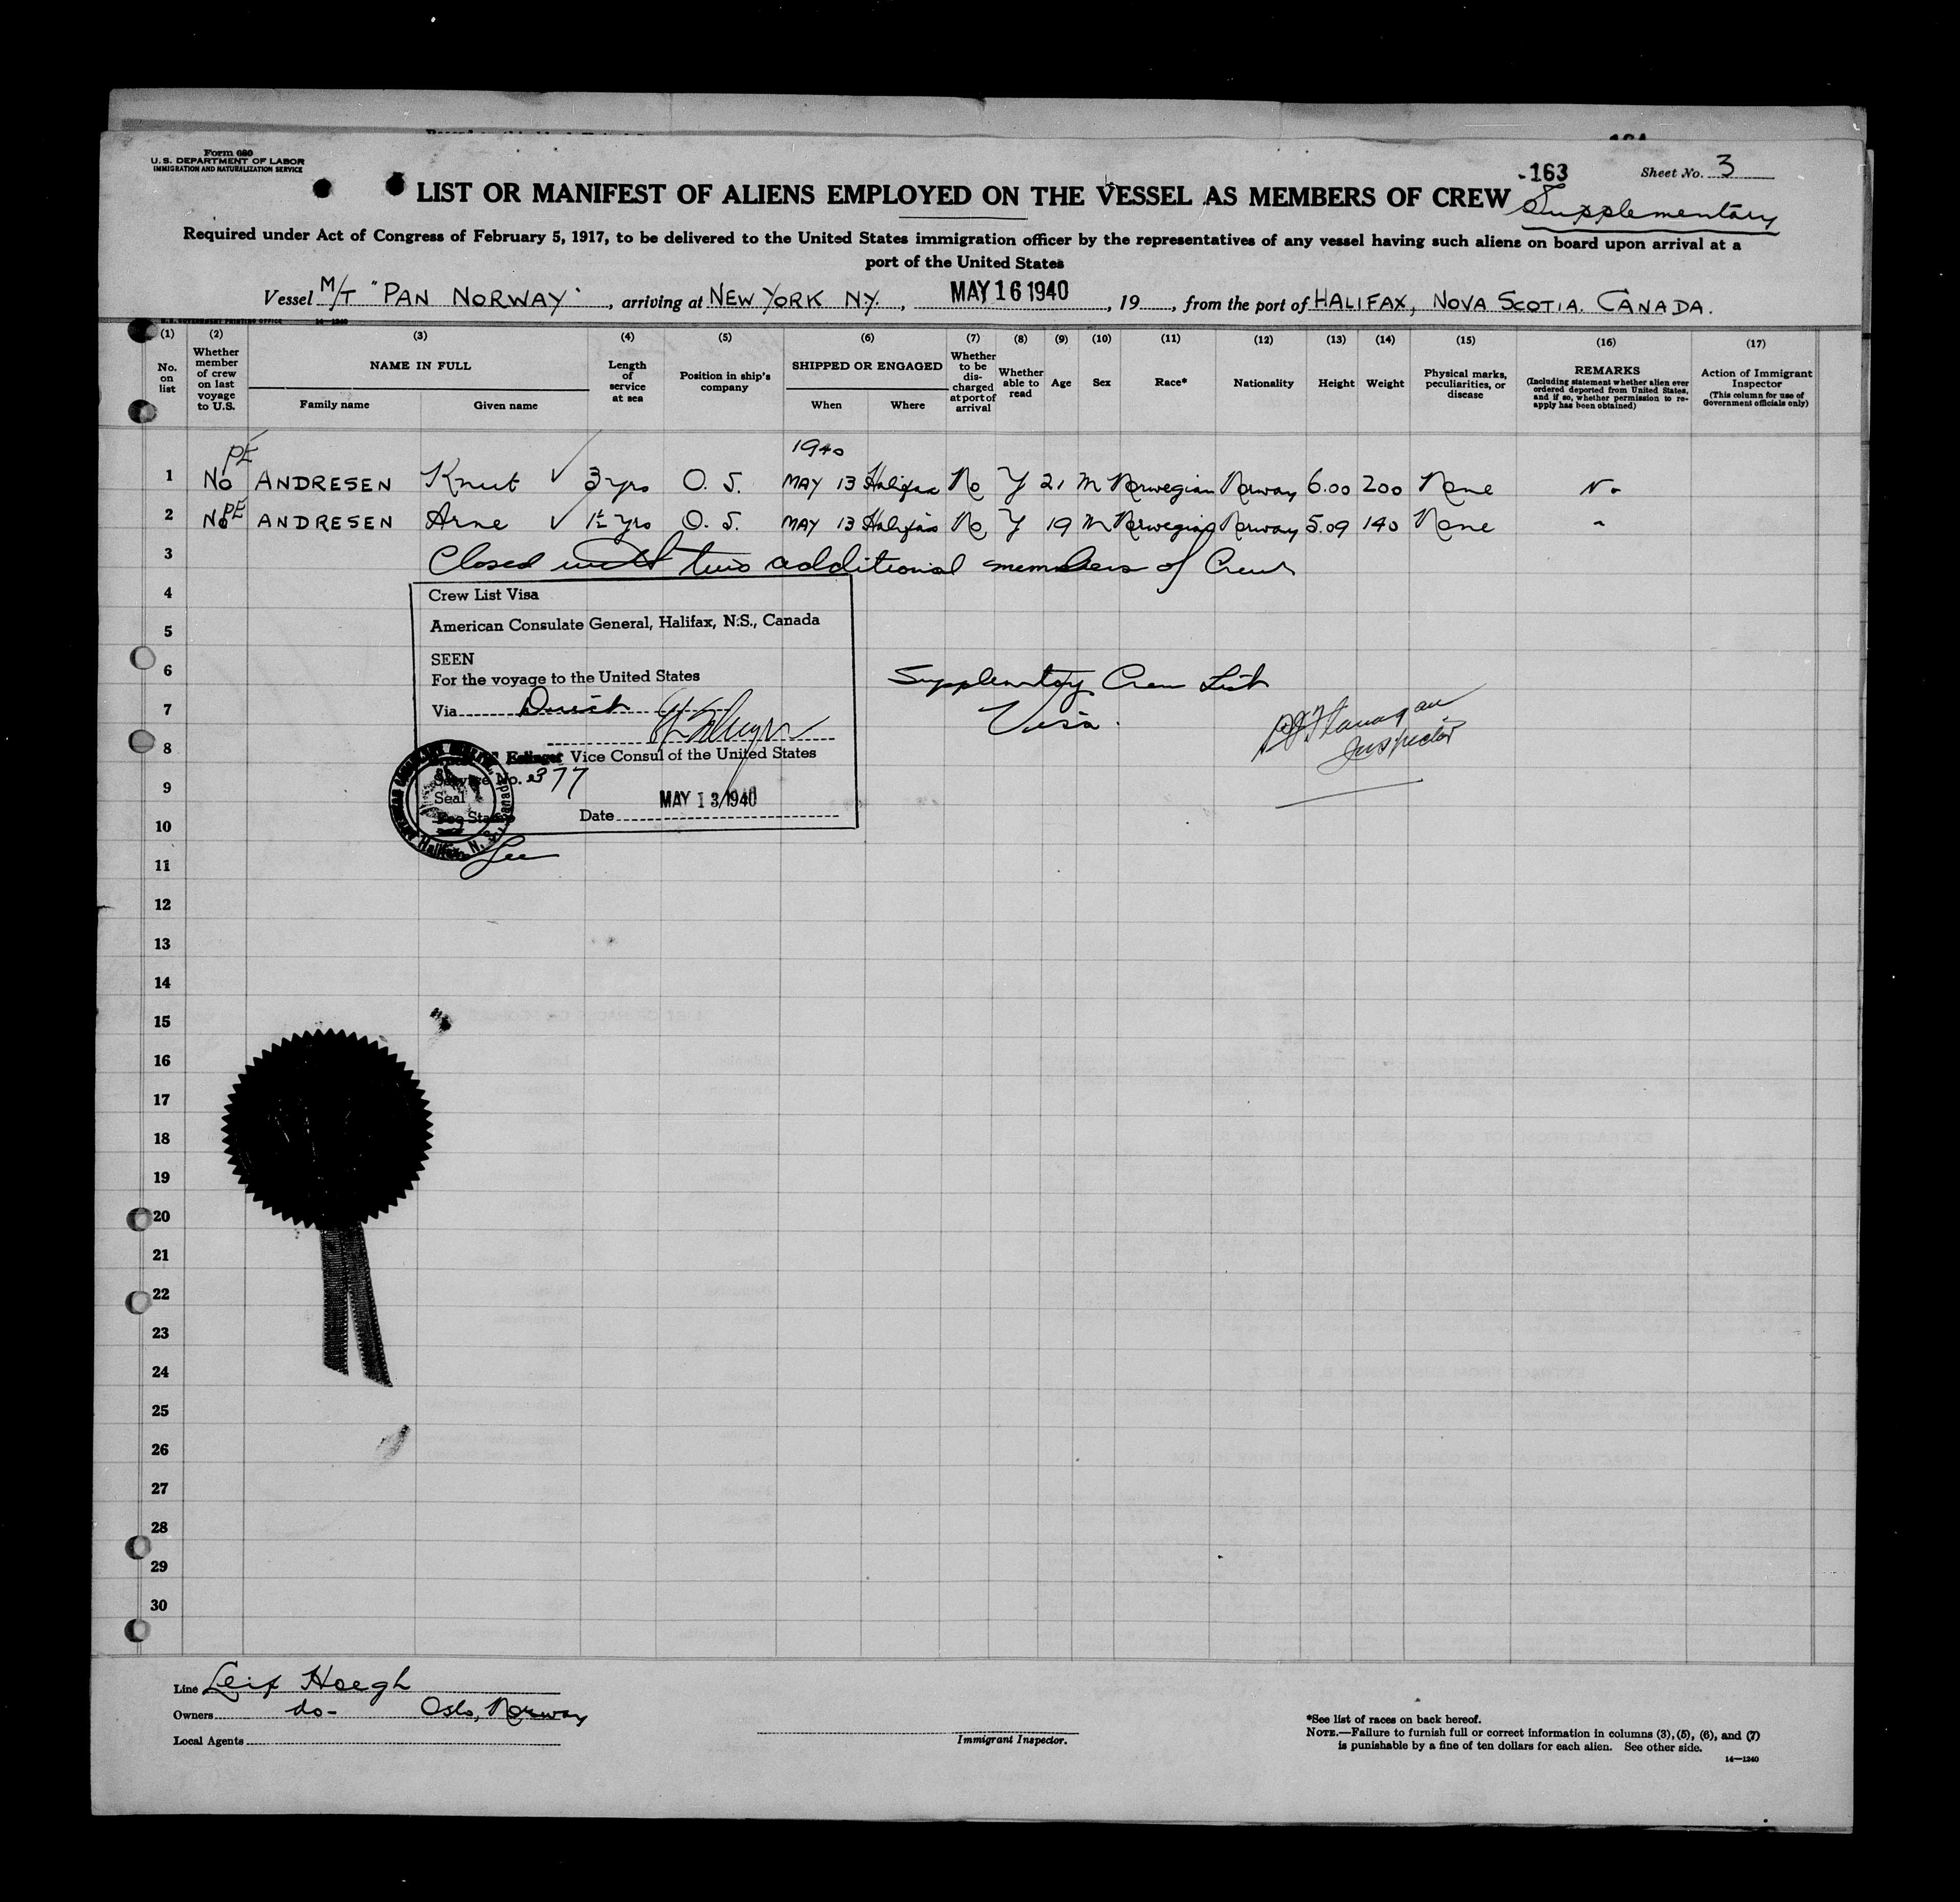 Form 680
U.S. DEPARTMENT OF LABOR
IMMIGRATION AND NATURALIZATION SERVICE
-163
Sheet No. 3
LIST OR MANIFEST OF ALIENS EMPLOYED ON THE VESSEL AS MEMBERS OF CREW
Supplementary
Required under Act of Congress of February 5, 1917, to be delivered to the United States immigration officer by the representatives of any vessel having such aliens on board upon arrival at a
port of the United States
Vessel M/T "PAN NORWAY", arriving at NEW YORK N.Y., MAY 16 1940, 19, from the port of HALIFAX, NOVA SCOTIA. CANADA.
U.S. GOVERNMENT PRINTING OFFICE 14—1240
(1) (2) (3) (4) (5) (6) (7) (8) (9) (10) (11) (12) (13) (14) (15) (16) (17)
No. on list
Whether member of crew on last voyage to U.S.
NAME IN FULL
Family name
Given name
Length of service at sea
Position in ship's company
SHIPPED OR ENGAGED
When
Where
Whether to be discharged at port of arrival
Whether able to read
Age
Sex
Race*
Nationality
Height
Weight
Physical marks, peculiarities, or disease
REMARKS
(Including statement whether alien ever ordered deported from United States, and if so, whether permission to re-apply has been obtained)
Action of Immigrant Inspector
(This column for use of Government officials only)
1940
PE
1 No ANDRESEN Knut ✓ 3 yrs O. S. MAY 13 Halifax No Y 21 M Norwegian Norway 6.00 200 None No
PE
2 No ANDRESEN Arne ✓ 1½ yrs O. S. MAY 13 Halifax No Y 19 M Norwegian Norway 5.09 140 None "
3 Closed with two additional members of Crew
4
Crew List Visa
American Consulate General, Halifax, N.S., Canada
5
SEEN
6
For the voyage to the United States
Supplementary Crew List
Via Direct
7
Visa.
Flanagan
Inspector
8
Vice Consul of the United States
Service No. 377
9
Seal
MAY 13 1940
Fee Stamp
Date
10
Halifax, N. S.
11
12
13
14
15
16
17
18
19
20
21
22
23
24
25
26
27
28
29
30
Line Leif Hoegh
Owners do- Oslo, Norway
Local Agents
Immigrant Inspector.
*See list of races on back hereof.
NOTE.—Failure to furnish full or correct information in columns (3), (5), (6), and (7)
is punishable by a fine of ten dollars for each alien. See other side.
14—1240